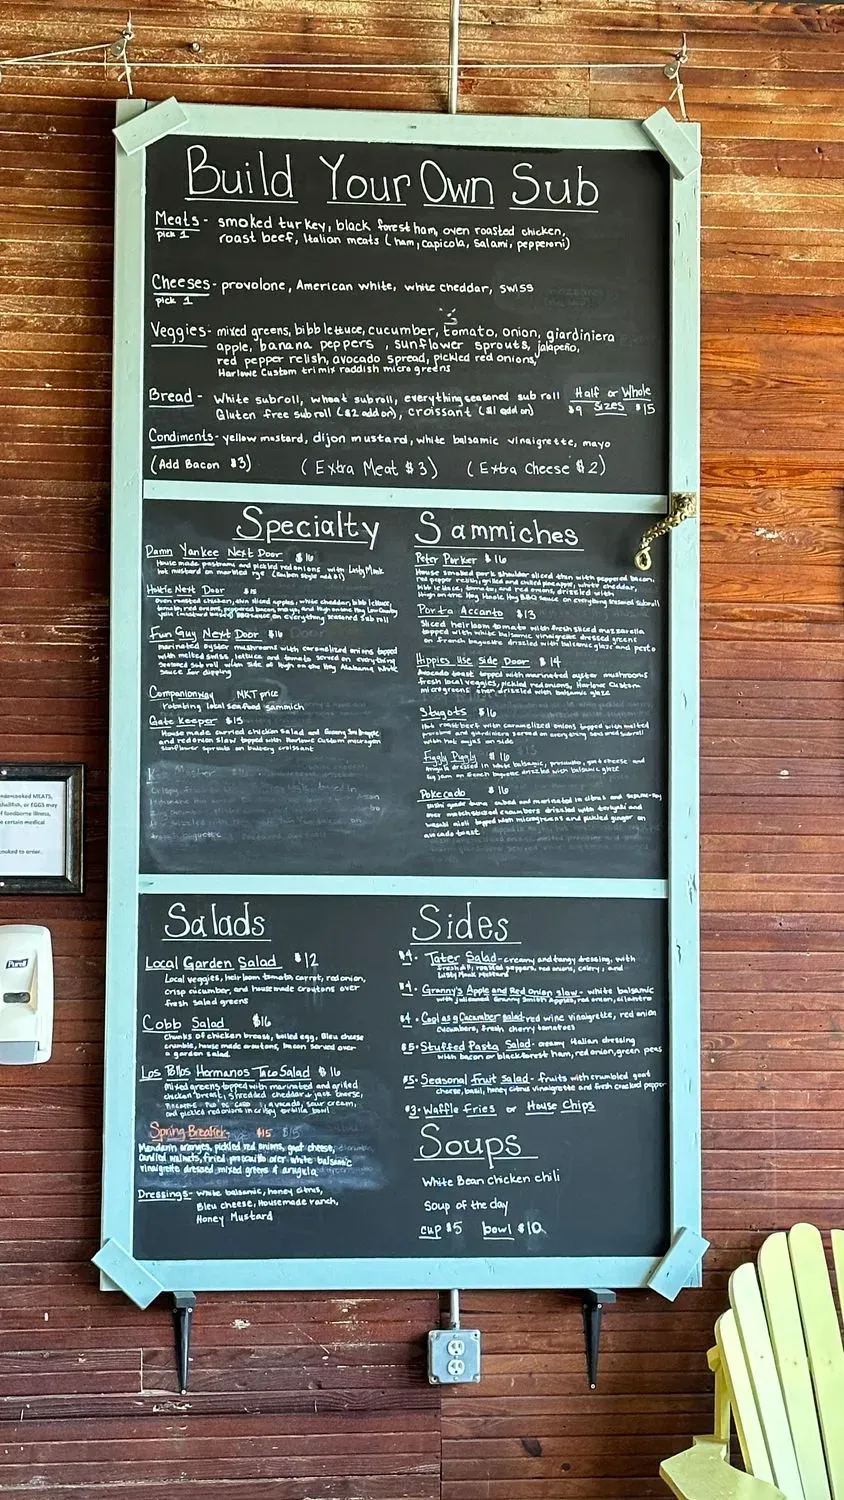 Build Your Own Sub
Meats - smoked turkey, black forest ham, oven roasted chicken,
pick 1
roast beef, Italian meats (ham, capicola, salami, pepperoni)
Cheeses - provolone, American white, white cheddar, swiss
pick 1
Veggies - mixed greens, bibb lettuce, cucumber, tomato, onion, giardiniera
apple, banana peppers, sunflower sprouts, jalapeño,
red pepper relish, avocado spread, pickled red onions,
Harlowe Custom tri mix raddish micro greens
Bread - White subroll, wheat subroll, everything seasoned sub roll
Gluten free subroll ($2 add on), croissant ($1 add on)
Half or Whole
$9 Sizes $15
Condiments - yellow mustard, dijon mustard, white balsamic vinaigrette, mayo
(Add Bacon $3) (Extra Meat $3) (Extra Cheese $2)
Specialty Sammiches
Damn Yankee Next Door $16
House made pastrami and pickled red onions with Lusty Monk
hot mustard on marbled rye
Hottie Next Door
oven roasted chicken, thin sliced apples, white cheddar, bibb lettuce,
tomato, red onions, peppered bacon, mayo, and High on the Hog Low Country
on everything seasoned sub roll
Fun Guy Next Door $16
marinated oyster mushrooms with caramelized onions topped
with melted swiss, lettuce and tomato served on everything
seasoned sub roll with side of High on the Hog Alabama White
sauce for dipping
Companionway MKT price
rotating local seafood sammich
Gate Keeper $15
House made curried chicken salad and
and red onion slaw topped with Harlowe Custom microgreen
sunflower sprouts on buttery croissant
Peter Porker $16
House smoked pork shoulder sliced thin with peppered bacon,
red pepper relish, grilled and chilled pineapple, white cheddar,
bibb lettuce, tomato, and red onions, drizzled with
High on the Hog BBQ sauce on everything seasoned subroll
Porta Accanto $13
Sliced heirloom tomato with fresh sliced mozzarella
topped with white balsamic vinaigrette dressed greens
on french baguette drizzled with balsamic glaze and pesto
Hippies Use Side Door $14
Avocado toast topped with marinated oyster mushrooms
fresh local veggies, pickled red onions, Harlowe Custom
microgreens then drizzled with balsamic glaze
Stugots $16
Hot roast beef with caramelized onions topped with melted
provolone and giardiniera served on everything seasoned subroll
with hot aujus on side
Figgly Piggly $16
Arugula dressed in white balsamic, prosciutto, goat cheese and
fig jam on french baguette drizzled with balsamic glaze
Pokecado $16
sushi grade tuna cubed and marinated in citrus and
over matchsticked cucumbers drizzled with teriyaki and
wasabi aioli topped with microgreens and pickled ginger on
avocado toast
Salads
Local Garden Salad $12
Local veggies, heirloom tomato, carrot, red onion,
crisp cucumber, and house made croutons over
fresh salad greens
Cobb Salad $16
Chunks of chicken breast, boiled egg, Bleu cheese
crumble, house made croutons, bacon served over
a garden salad
Los Pollos Hermanos - Taco Salad $16
Mixed greens topped with marinated and grilled
chicken breast, shredded cheddar + jack cheese,
avocado, sour cream,
and pickled red onions in crispy tortilla bowl
Spring Breaker $15
Mandarin oranges, pickled red onions, goat cheese,
candied walnuts, fried prosciutto over white balsamic
vinaigrette dressed mixed greens & arugula
Dressings - white balsamic, honey citrus,
Bleu cheese, Housemade ranch,
Honey Mustard
Sides
$4 - Tater Salad - creamy and tangy dressing, with
fresh dill, roasted peppers, red onions, celery, and
Lusty Monk Mustard
$4 - Granny's Apple and Red onion slaw - white balsamic
with julienned Granny Smith Apples, red onion, cilantro
$4 - Cool as a Cucumber salad - red wine vinaigrette, red onion
cucumbers, fresh cherry tomatoes
$5 - Stuffed Pasta Salad - creamy Italian dressing
with bacon or black forest ham, red onion, green peas
$5 - Seasonal Fruit Salad - fruits with crumbled goat
cheese, basil, honey citrus vinaigrette and fresh cracked pepper
$3 - Waffle Fries or House Chips
Soups
White Bean chicken chili
Soup of the day
cup $5 bowl $10
MEATS,
or EGGS may
foodborne illness,
certain medical
cooked to order.
Purell